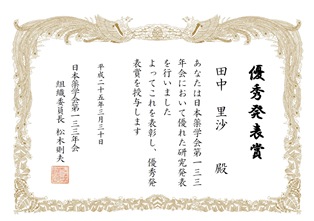 優秀発表賞
田中 里沙 殿
あなたは日本薬学会第一三三
年会において優れた研究発表
を行いました
よってこれを表彰し、優秀発
表賞を授与します
平成二十五年三月三十日
日本薬学会第一三三年会
組織委員長 松木則夫